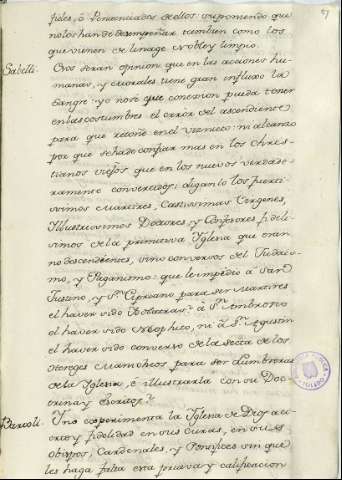 fieles, ò Penitenciados de ellos: suponiendo que
no los han de desempeñar tambien como los
que vienen de linage Noble y limpio.
Sabelli. Otros serán opinion que en las acciones hu-
manas, y morales tiene gran influxo la
Sangre: yo no sè que conexion pueda tener
en las costumbres el error del ascendiente
para que retoñe en el viznieto: ni alcanzo
por que se hade confiar mas en los Chris-
tianos viejos que en los nuevos verdade-
ramente convertidos: diganlo los fuerti-
simos Martires, Castisimas Virgenes,
Illustrisimos Doctores, y Confesores fideli-
simos de la primitiva Iglesia que eran
no descendientes, sino conversos del Judais-
mo, y Paganismo: que le impediò à San
Justino, y Sn. Cipriano para ser Martires
el haver sido Idolatras? à Sn. Ambrosio
el haver sido Neophito, ni à Sn. Agustin
el haver sido converso de la Secta de los
Hereges Manicheos para ser Lumbreras
de la Iglesia, è illustrarla con su Doc-
trina y Escritos?
Bartoli. Uno experimenta la Iglesia de Dios aci-
erto y fidelidad en sus Curas, en sus
obispos, Cardenales, y Pontifices sin que
les haga falta esta prueva y calificacion